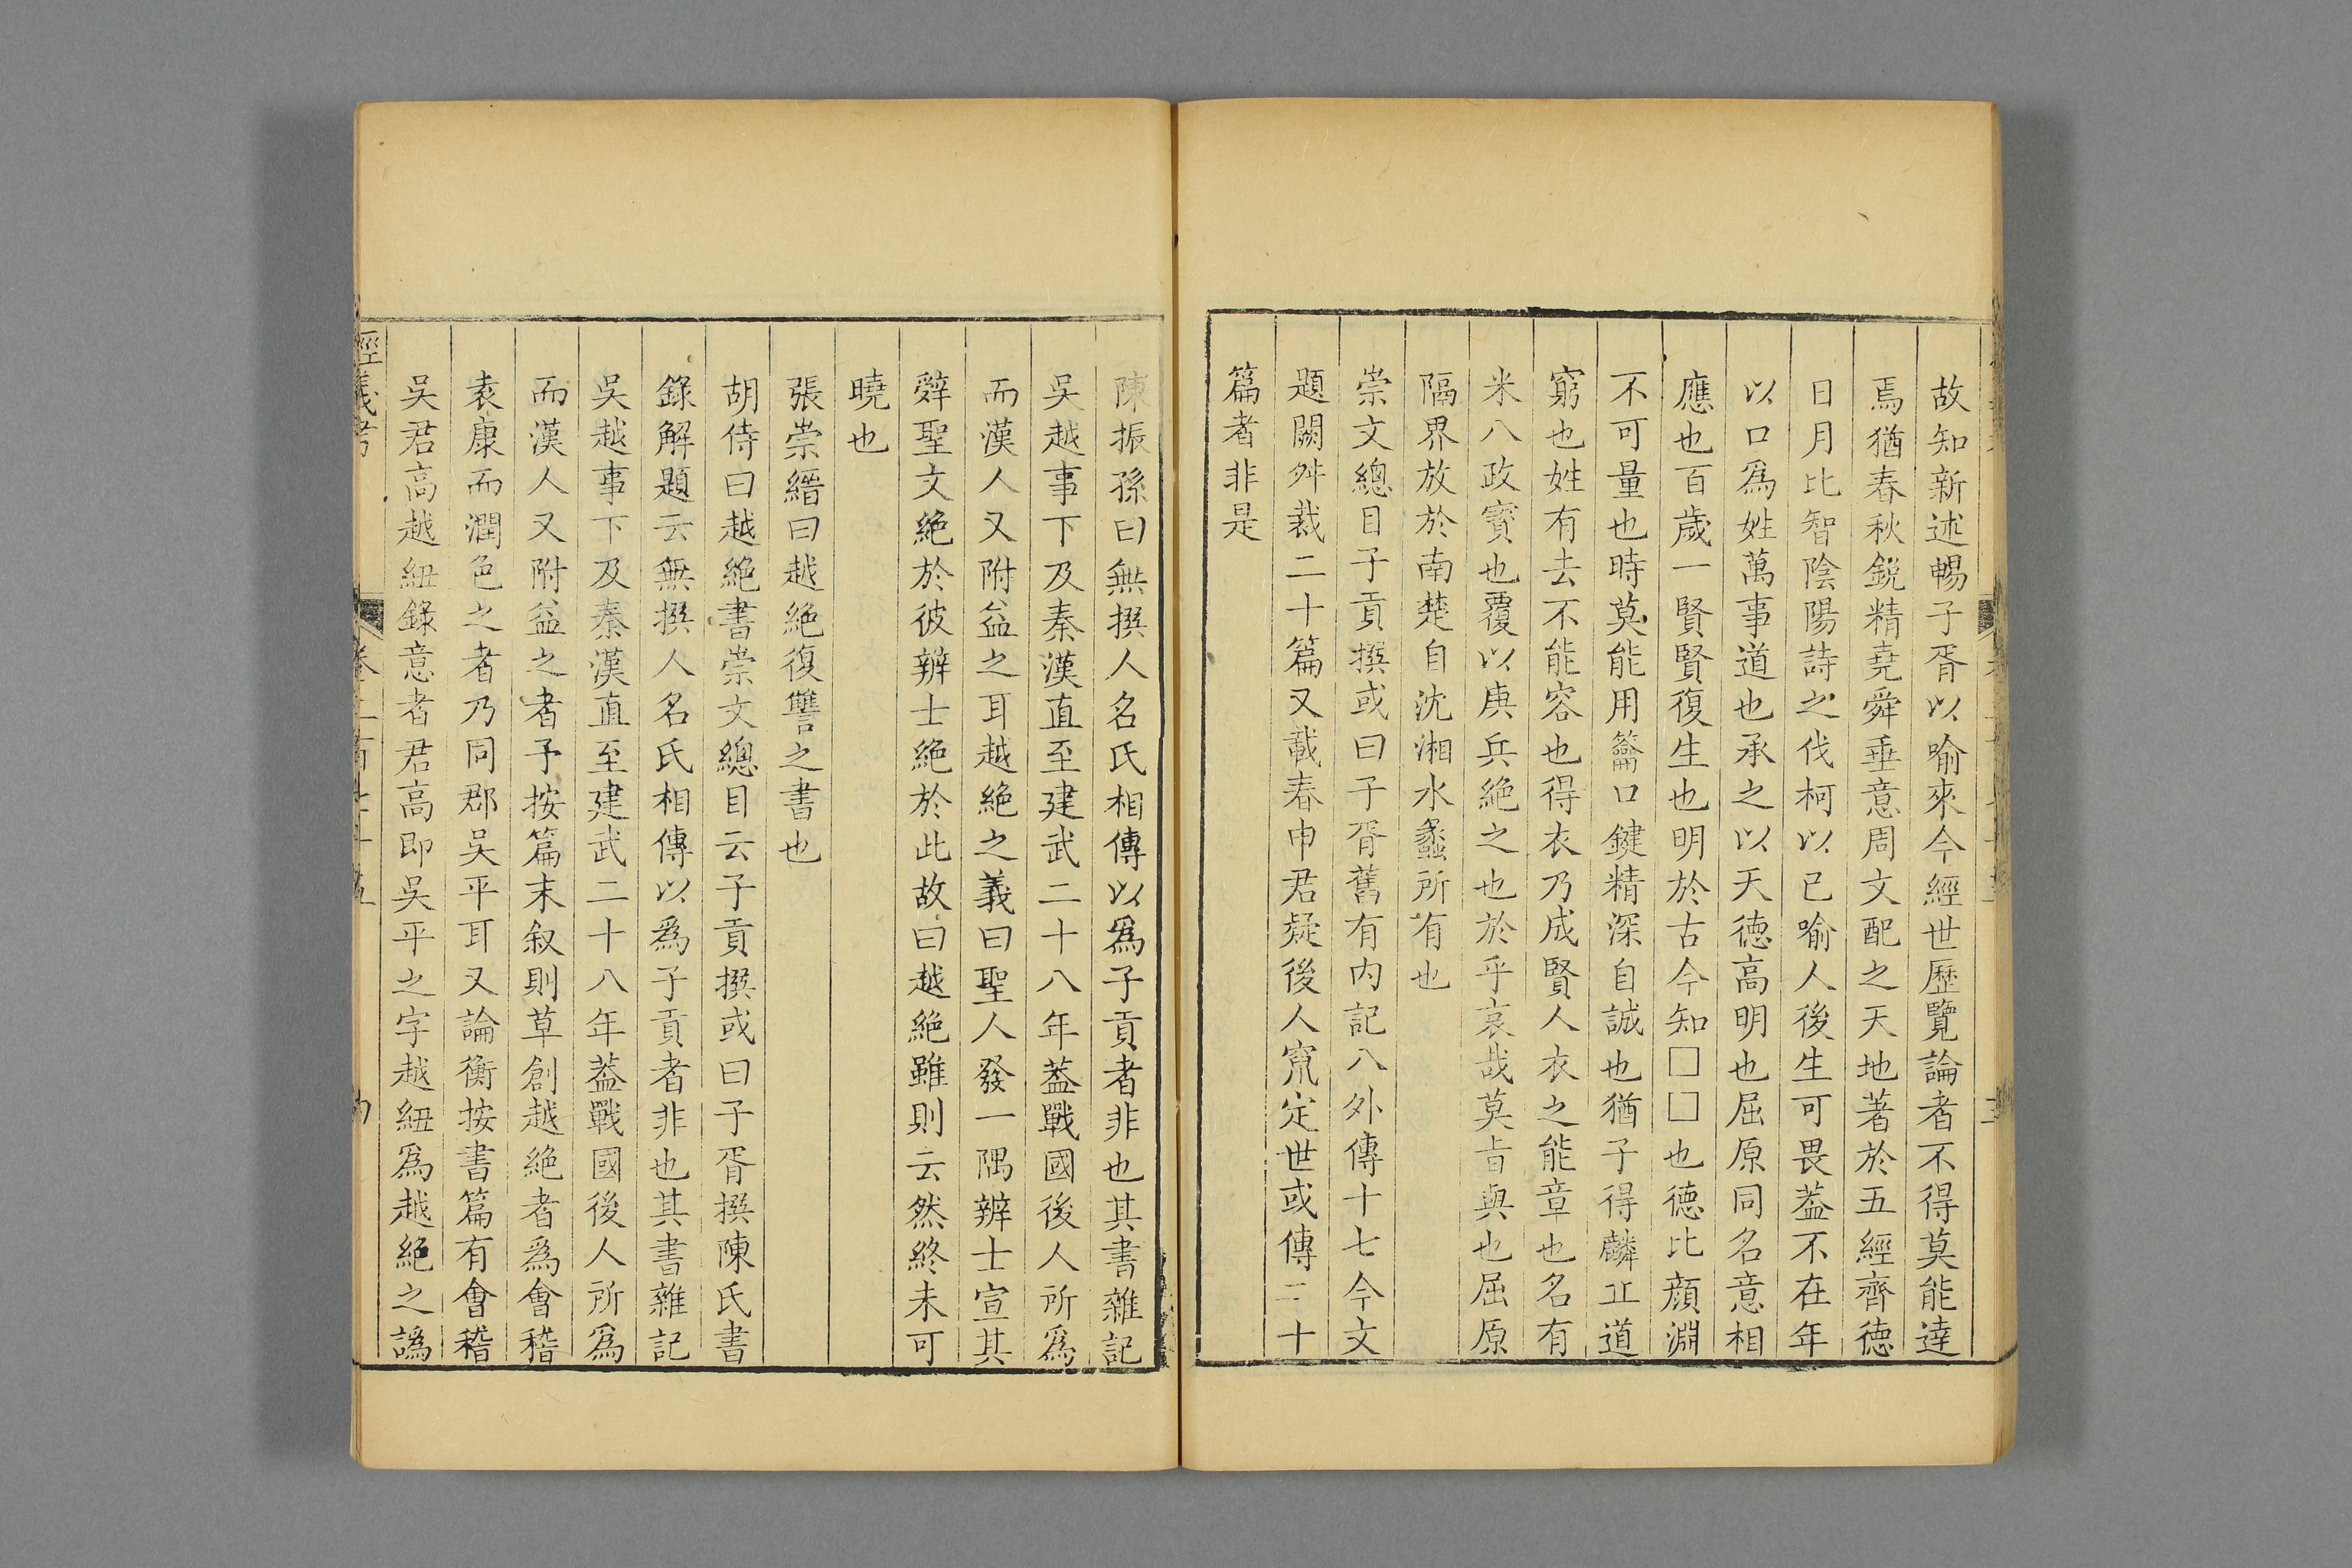 故知新述暢子胥以喻來今經世歷覽論者不得莫能達
焉猶春秋銳精堯舜垂意周文配之天地著於五經齊德
日月比智陰陽詩之伐柯以己喻人後生可畏蓋不在年
以口爲姓萬事道也承之以天德高明也屈原同名意相
應也百歲一賢賢復生也明於古今知□□也德比顏淵
不可量也時莫能用籥口鍵精深自誠也猶子得麟丘道
窮也姓有去不能容也得衣乃成賢人衣之能章也名有
米八政寶也覆以庚兵絕之也於乎哀哉莫肯與也屈原
隔界放於南楚自沈湘水蠡所有也
崇文總目子貢撰或曰子胥舊有内記八外傳十七今文
題闕舛裁二十篇又載春申君疑後人竄定世或傳二十
篇者非是
陳振孫曰無撰人名氏相傳以爲子貢者非也其書雜記
吳越事下及秦漢直至建武二十八年蓋戰國後人所爲
而漢人又附益之耳越絕之義曰聖人發一隅辨士宣其
辭聖文絕於彼辨士絕於此故曰越絕雖則云然終未可
曉也
張崇縉曰越絕復讐之書也
胡侍曰越絕書崇文總目云子貢撰或曰子胥撰陳氏書
錄解題云無撰人名氏相傳以爲子貢者非也其書雜記
吳越事下及秦漢直至建武二十八年蓋戰國後人所爲
而漢人又附益之者予按篇末叙則草創越絕者爲會稽
袁康而潤色之者乃同郡吳平耳又論衡按書篇有會稽
吳君高越紐錄意者君高即吳平之字越紐爲越絕之譌
經義考